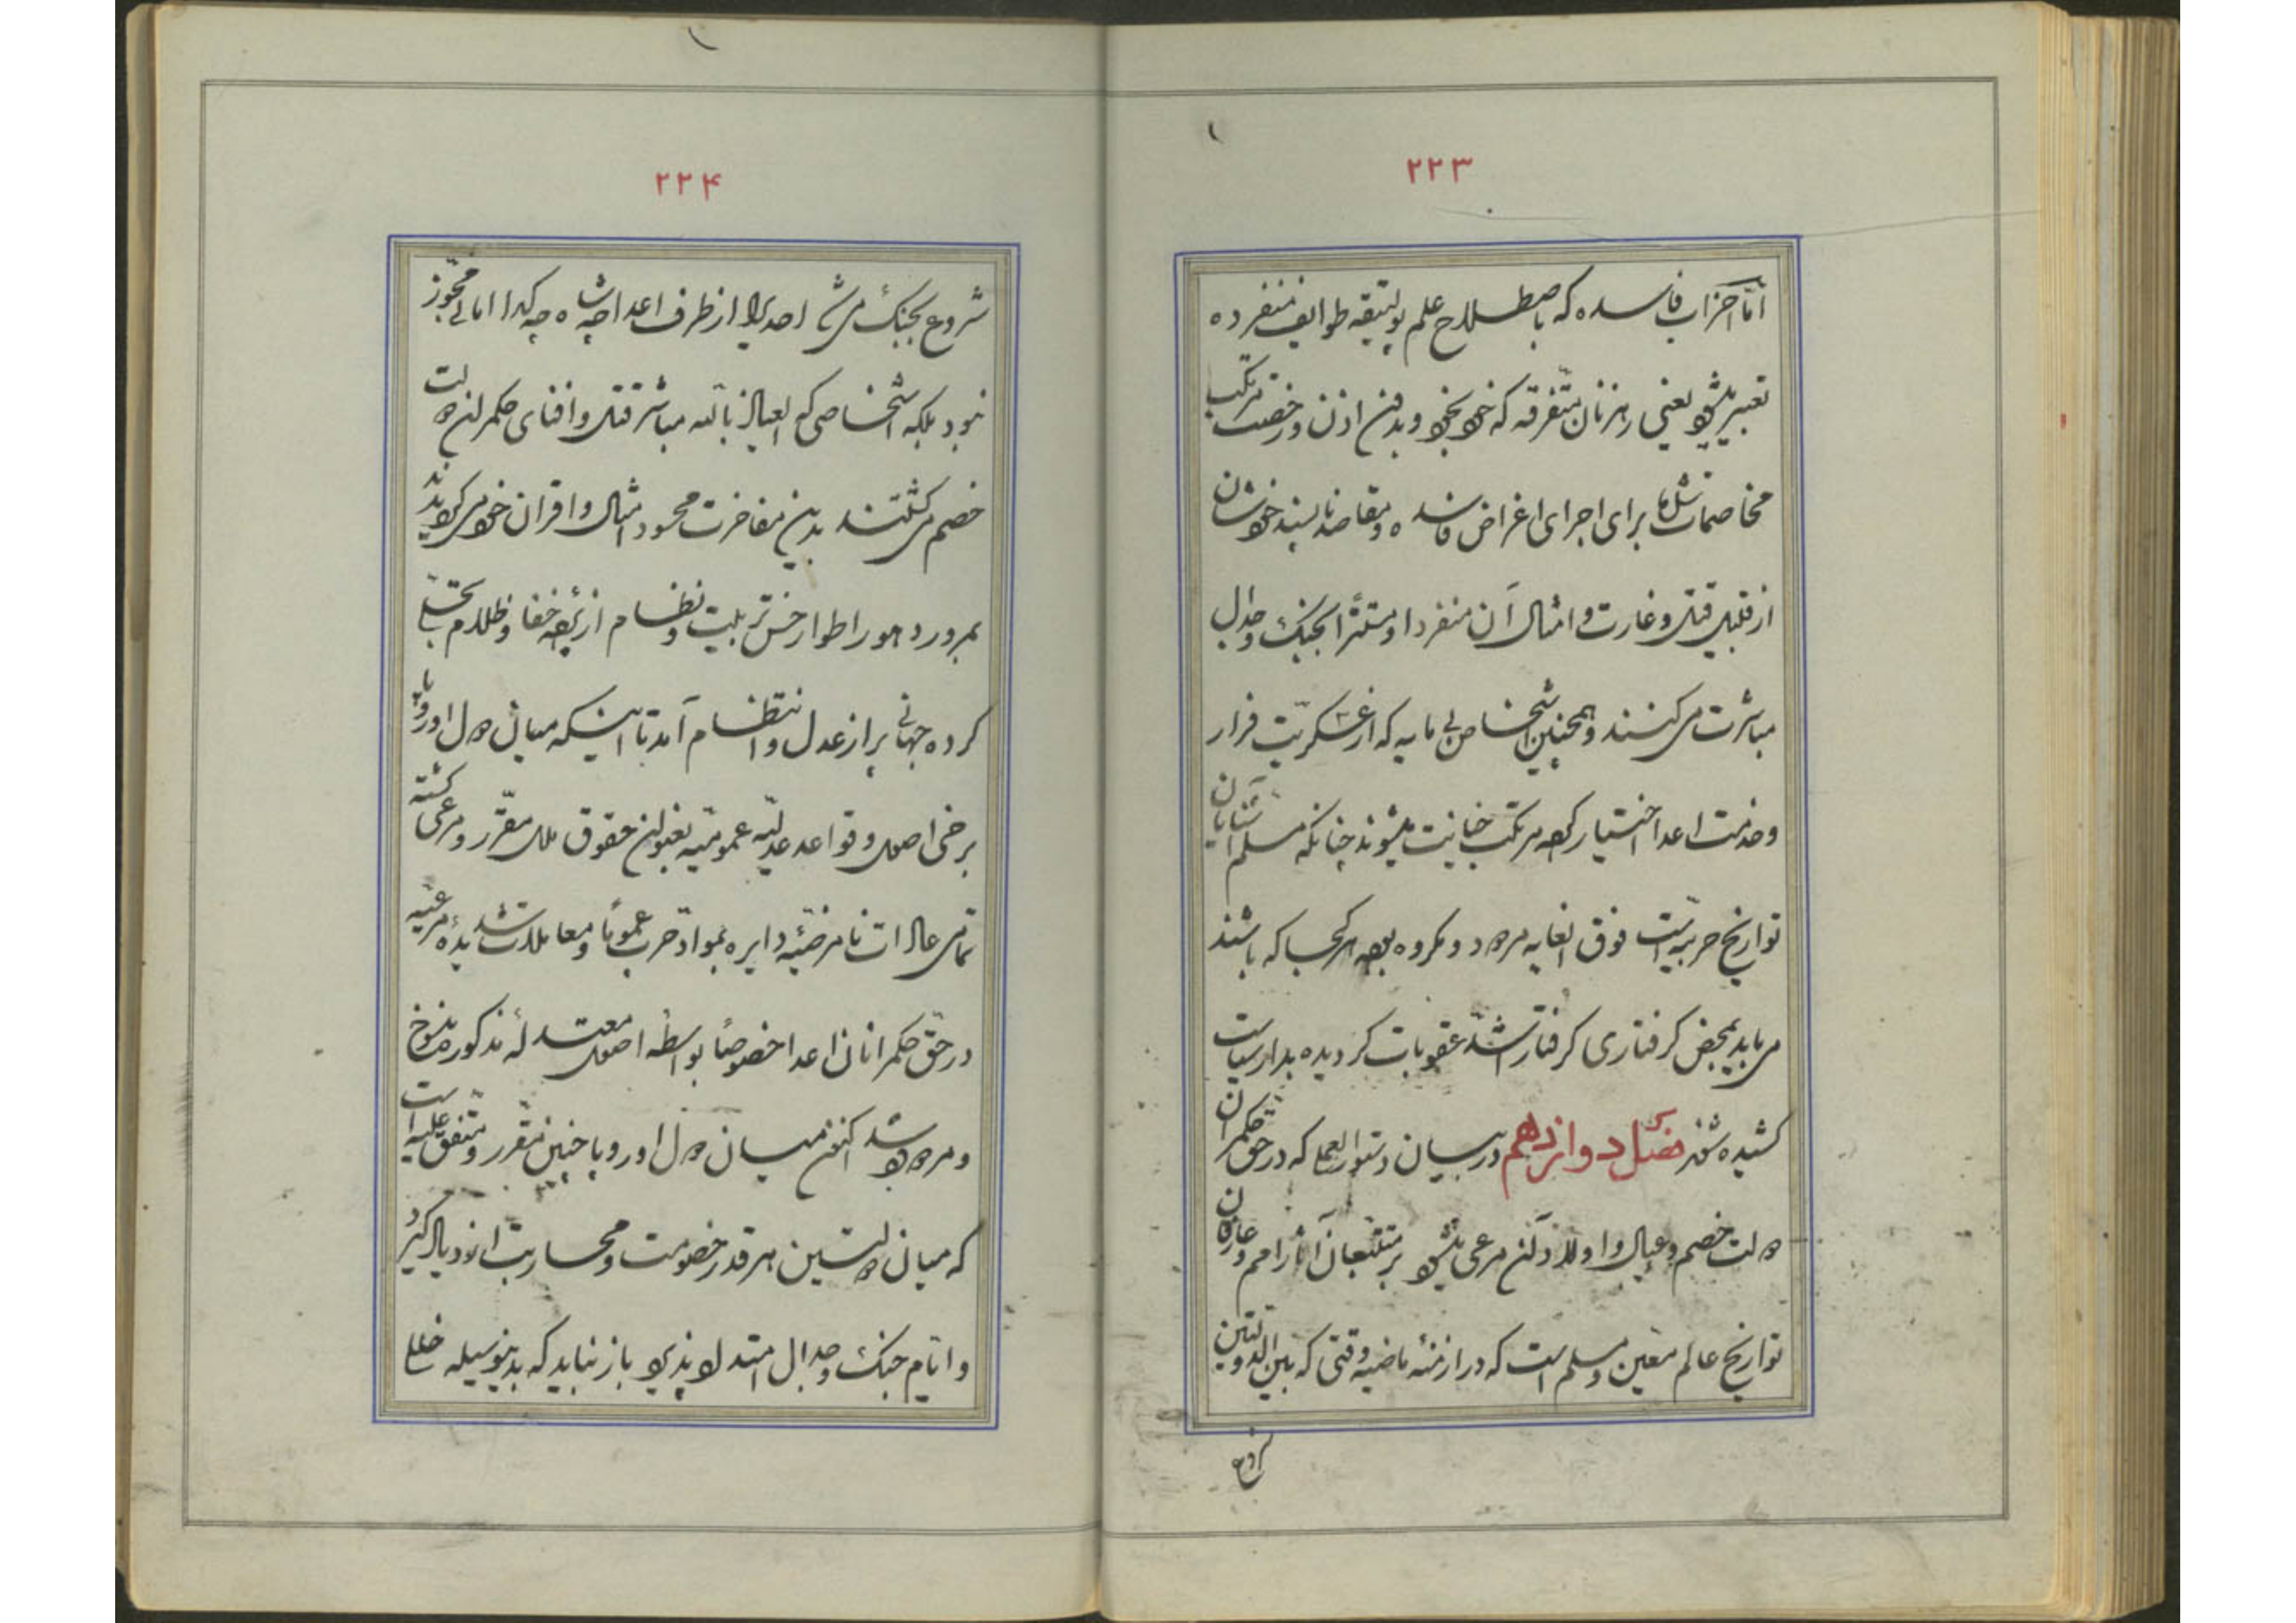 ۲۲۳
امّا احزاب فاسده که باصطلاح علم پولیتیقه طوایف منفرده
تعبیر میشود یعنی رهزنان متفرقه که خود بخود و بدون اذن و رخصت مرتکب
مخاصمات شده برای اجرای اغراض فاسده و مقاصد ناپسند خودشان
از قبیل قتل و غارت و امثال آن منفردا و مستترا بجنک و جدال
مباشرت می کنند و همچنین اشخاص بی مایه که از عسکریّت فرار
و خدمت اعدا اختیار کرده مرتکب خیانت میشوند چنانکه مسلم آشنایان
تواریخ حربیّه است فوق الغایه مردود و مکروه بوده هر کجا که باشند
می باید بمحض کرفتاری کرفتار اشدّ عقوبات کردیده بدار سیاست
کشیده شوند فصل دوازدهم در بیان دستورالعملی که در حق حکمرانان
دولت خصم و عیال و اولاد آن مرعی میشود بر متتبعان آثار امم و عارفان
تواریخ عالم معین و مسلم است که در ازمنهٔ ماضیه وقتی که بین الدولتین
شروع
۲۲۴
شروع بجنک می شد احدی را از طرف اعدا چه شاه و چه کدا امانی مجوز
نبود بلکه اشخاصی که العیاذ بالله مباشر قتل و افنای حکمران دولت
خصم می کشتند بدین مفاخرت محسود امثال و اقران خود می کردیدند
بمرور دهور اطوار حسن تربیت و نظام از پرده خفا و ظلام تجلّی
کرده جهانی پر از عدل و انتظام آمد تا اینکه میان دول اوروپا
برخی اصول و قواعد عدلیّه عمومیّه بعنوان حقوق ملل مقرّر و مرعی کشته
تمامی عادات نامرضیّه دایره بموادّ حرب عموماً و معاملات شدیدهٔ مرعیّه
در حقّ حکمرانان اعدا خصوصاً بواسطه اصول معتدلهٔ مذکوره منسوخ
و مردود شد اکنون میان دول اوروپا چنین مقرر و متفق علیه است
که میان دولتین هر قدر خصومت و محاربت ازدیاد کیرد
و ایّام جنک و جدال امتداد پذیرد باز نباید که بدینوسیله خللی